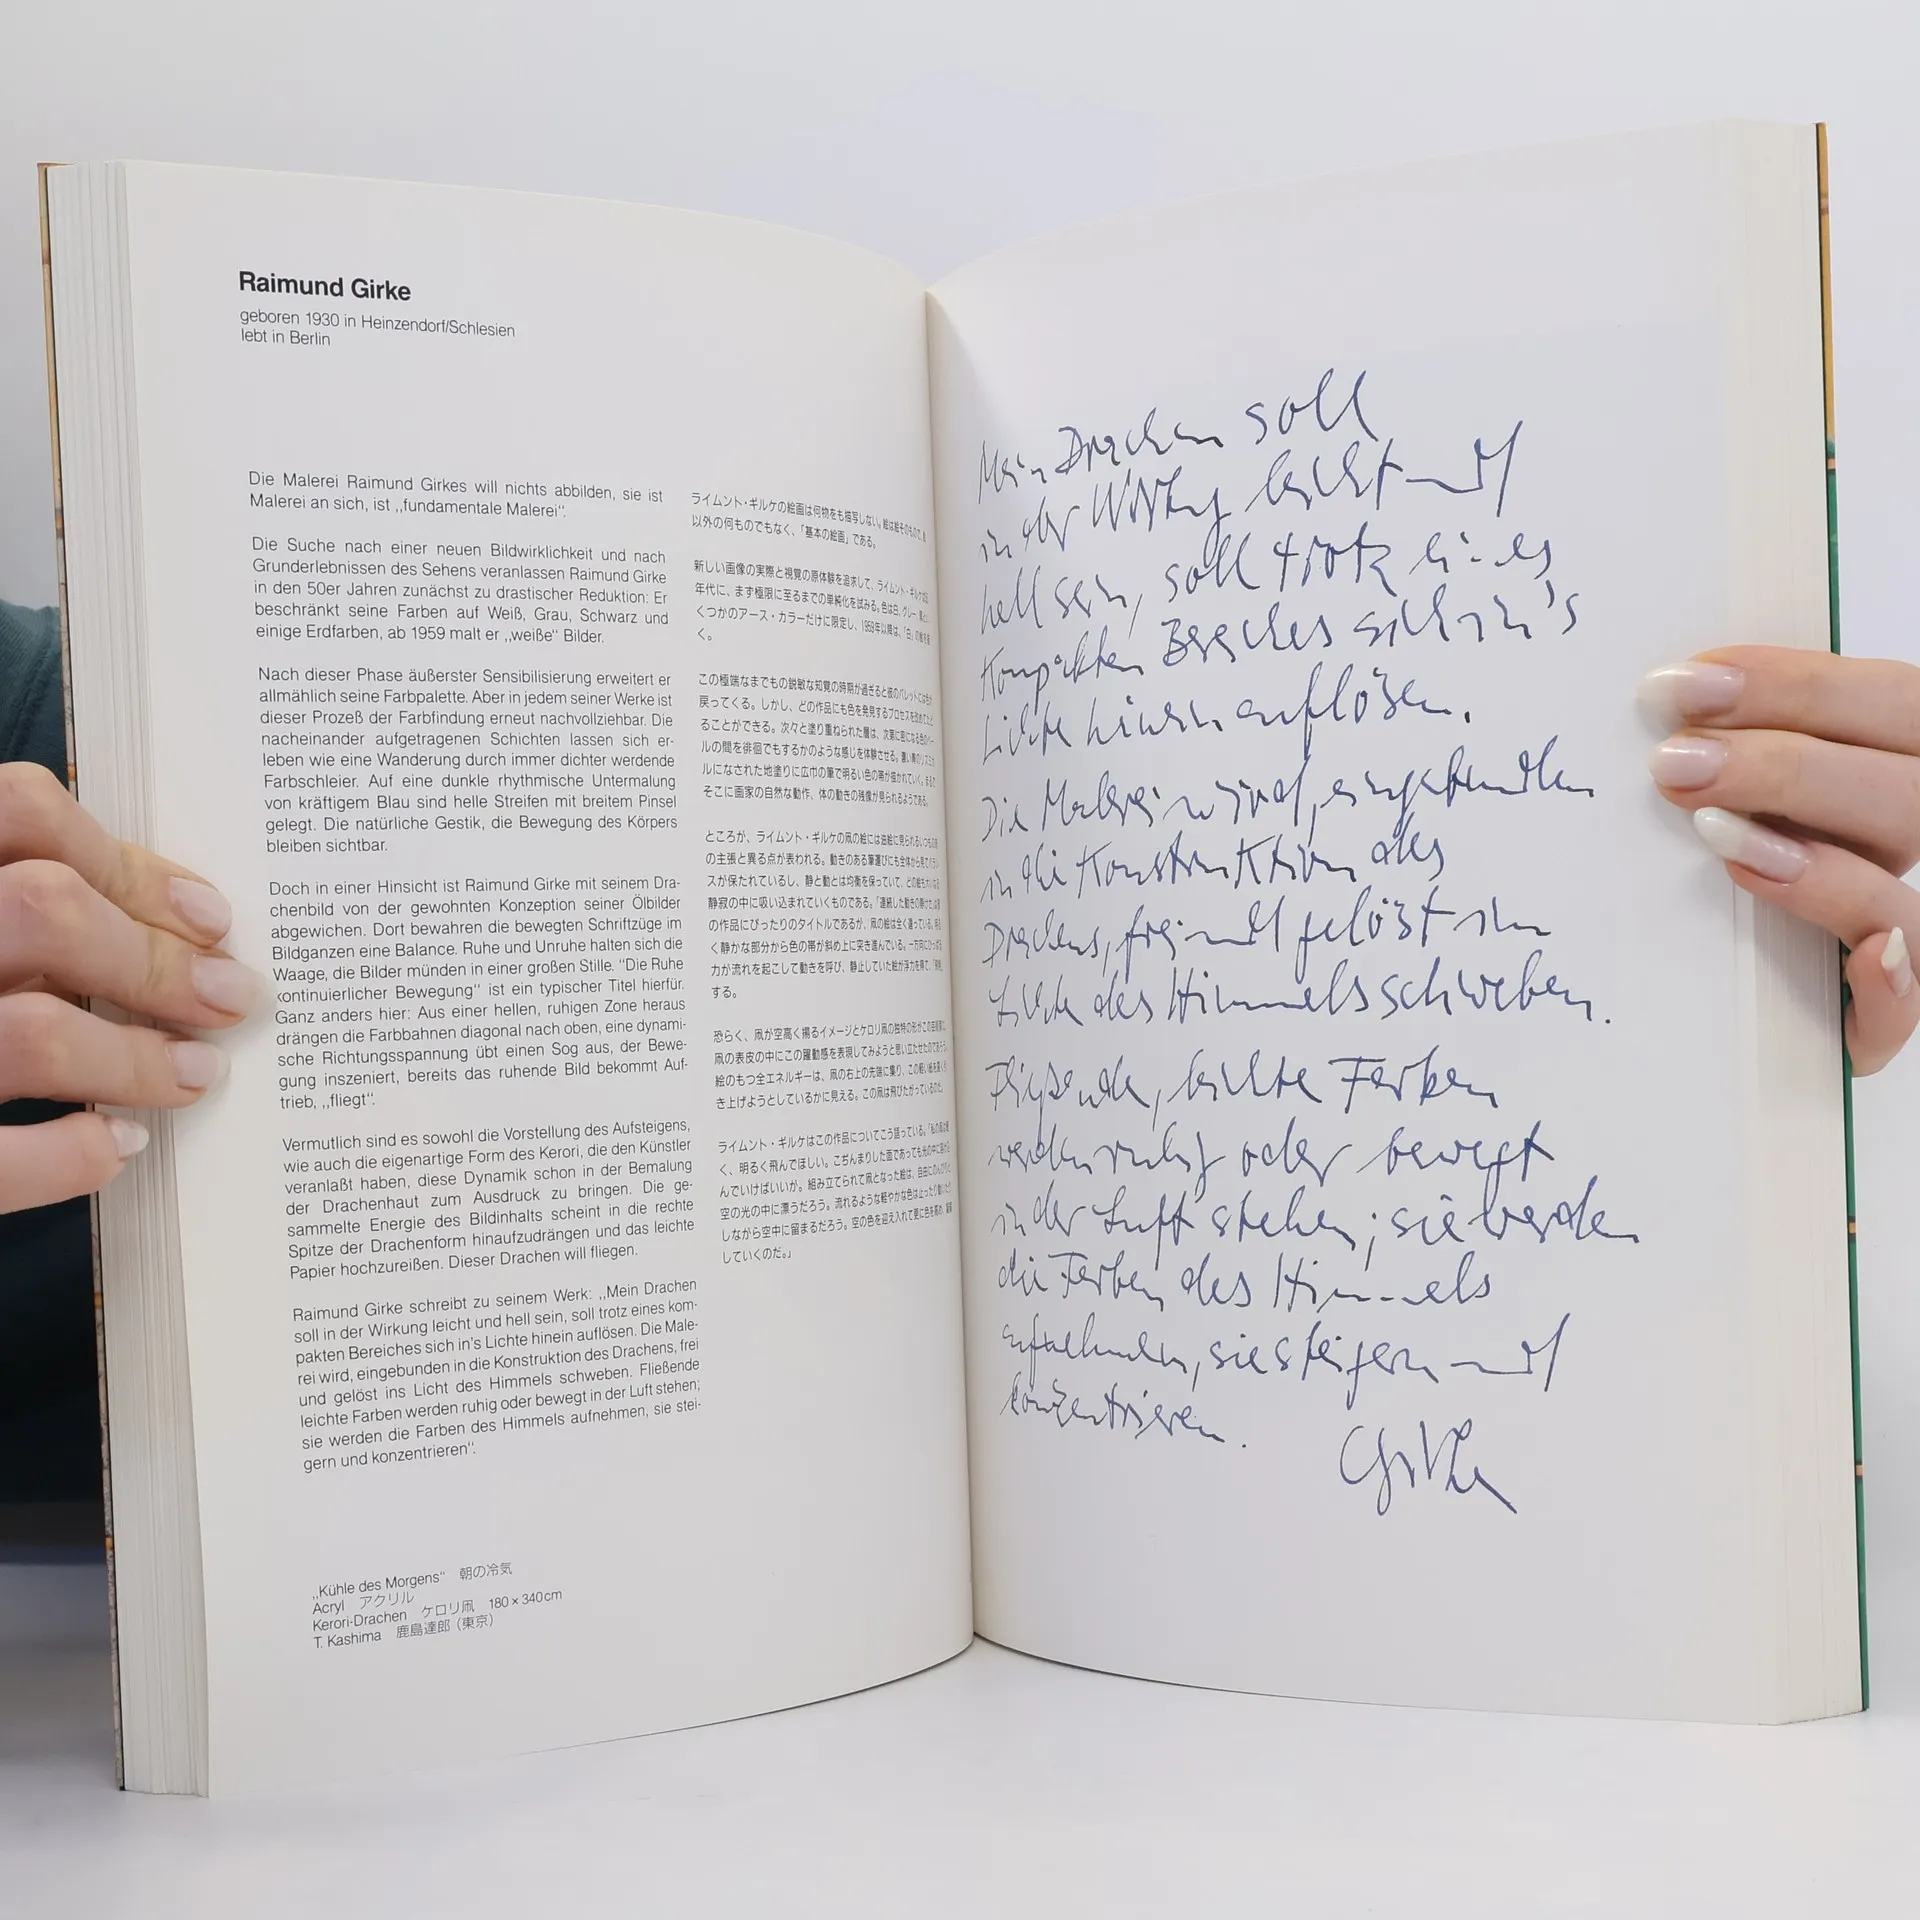 Raimund Girke
geboren 1930 in Heinzendorf/Schlesien
lebt in Berlin
Die Malerei Raimund Girkes will nichts abbilden, sie ist
Malerei an sich, ist ,,fundamentale Malerei“.
Die Suche nach einer neuen Bildwirklichkeit und nach
Grunderlebnissen des Sehens veranlassen Raimund Girke
in den 50er Jahren zunächst zu drastischer Reduktion: Er
beschränkt seine Farben auf Weiß, Grau, Schwarz und
einige Erdfarben, ab 1959 malt er ,,weiße“ Bilder.
Nach dieser Phase äußerster Sensibilisierung erweitert er
allmählich seine Farbpalette. Aber in jedem seiner Werke ist
dieser Prozeß der Farbfindung erneut nachvollziehbar. Die
nacheinander aufgetragenen Schichten lassen sich er-
leben wie eine Wanderung durch immer dichter werdende
Farbschleier. Auf eine dunkle rhythmische Untermalung
von kräftigem Blau sind helle Streifen mit breitem Pinsel
gelegt. Die natürliche Gestik, die Bewegung des Körpers
bleiben sichtbar.
Doch in einer Hinsicht ist Raimund Girke mit seinem Dra-
chenbild von der gewohnten Konzeption seiner Ölbilder
abgewichen. Dort bewahren die bewegten Schriftzüge im
Bildganzen eine Balance. Ruhe und Unruhe halten sich die
Waage, die Bilder münden in einer großen Stille. “Die Ruhe
kontinuierlicher Bewegung“ ist ein typischer Titel hierfür.
Ganz anders hier: Aus einer hellen, ruhigen Zone heraus
drängen die Farbbahnen diagonal nach oben, eine dynami-
sche Richtungsspannung übt einen Sog aus, der Bewe-
gung inszeniert, bereits das ruhende Bild bekommt Auf-
trieb, ,,fliegt“.
Vermutlich sind es sowohl die Vorstellung des Aufsteigens,
wie auch die eigenartige Form des Kerori, die den Künstler
veranlaßt haben, diese Dynamik schon in der Bemalung
der Drachenhaut zum Ausdruck zu bringen. Die ge-
sammelte Energie des Bildinhalts scheint in die rechte
Spitze der Drachenform hinaufzudrängen und das leichte
Papier hochzureißen. Dieser Drachen will fliegen.
Raimund Girke schreibt zu seinem Werk: ,,Mein Drachen
soll in der Wirkung leicht und hell sein, soll trotz eines kom-
pakten Bereiches sich in's Lichte hinein auflösen. Die Male-
rei wird, eingebunden in die Konstruktion des Drachens, frei
und gelöst ins Licht des Himmels schweben. Fließende
leichte Farben werden ruhig oder bewegt in der Luft stehen;
sie werden die Farben des Himmels aufnehmen, sie stei-
gern und konzentrieren“.
ライムント・ギルケの絵画は何物をも描写しない。絵は絵そのもので、
以外の何ものでもなく、「基本の絵画」である。
新しい画像の実際と視覚の原体験を追求して、ライムント・ギルケは
年代に、まず極限に至るまでの単純化を試みる。色は白、グレー、
くつかのアース・カラーだけに限定し、1959年以降は、「白」の絵を
く。
この極端なまでもの鋭敏な知覚の時期が過ぎると彼のパレットには色が
戻ってくる。しかし、どの作品にも色を発見するプロセスを
ることができる。次々と塗り重ねられた層は、次第に密になる色の
ルの間を徘徊でもするかのような感じを体験させる。
ルになされた地塗りに広巾の筆で明るい色の帯が描かれていく。
そこに画家の自然な動作、体の動きの残像が見られるようである。
ところが、ライムント・ギルケの凧の絵には油絵に見られるいつもの
の主張と異る点が表われる。動きのある筆運びにも全体から見て
スが保たれているし、静と動とは均衡を保っていて、どの絵も
静寂の中に吸い込まれていくものである。「連続した動きの静けさ」
の作品にぴったりのタイトルであるが、凧の絵は全く違っている。
く静かな部分から色の帯が斜め上に突き進んでいる。一方向に
力が流れを起こして動きを呼び、静止していた絵が浮力を得て、
する。
恐らく、凧が空高く揚るイメージとケロリ凧の独特の形がこの
凧の表皮の中にこの躍動感を表現してみようと思い立たせたのであろう。
絵のもつ全エネルギーは、凧の右上の先端に集り、この軽い紙を
き上げようとしているかに見える。この凧は飛びたがっているのだ。
ライムント・ギルケはこの作品についてこう語っている。「私の凧は
く、明るく飛んでほしい。こぢんまりした面であっても光の中に
んでいけばいいが。組み立てられて凧となった絵は、自由に
空の光の中に漂うだろう。流れるような軽やかな色は止ったり
しながら空中に留まるだろう。空の色を迎え入れて更に色を高め、
していくのだ。」
,,Kühle des Morgens“ 朝の冷気
Acryl アクリル
Kerori-Drachen ケロリ凧 180 × 340 cm
T. Kashima 鹿島達郎（東京）
Mein Drachen soll
in der Wirkung leicht und
hell sein, soll trotz eines
kompakten Bereiches sich in's
Lichte hinein auflösen.
Die Malerei wird, eingebunden
in die Konstruktion des
Drachens, frei und gelöst im
Lichte des Himmels schweben.
Fließende, leichte Farben
werden ruhig oder bewegt
in der Luft stehen; sie werden
die Farben des Himmels
aufnehmen, sie steigern und
konzentrieren.
Girke